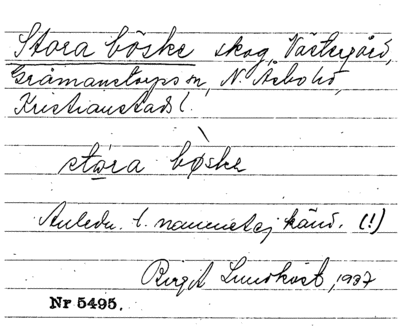 Stora böske skog, Västergård,
Gråmanstorps sn, N. Åsbo hd,
Kristianstads l.
stóra bø̀ske
Anledn. t. namnet ej känd. (!)
Birgit Lundkvist, 1937
Nr 5495.